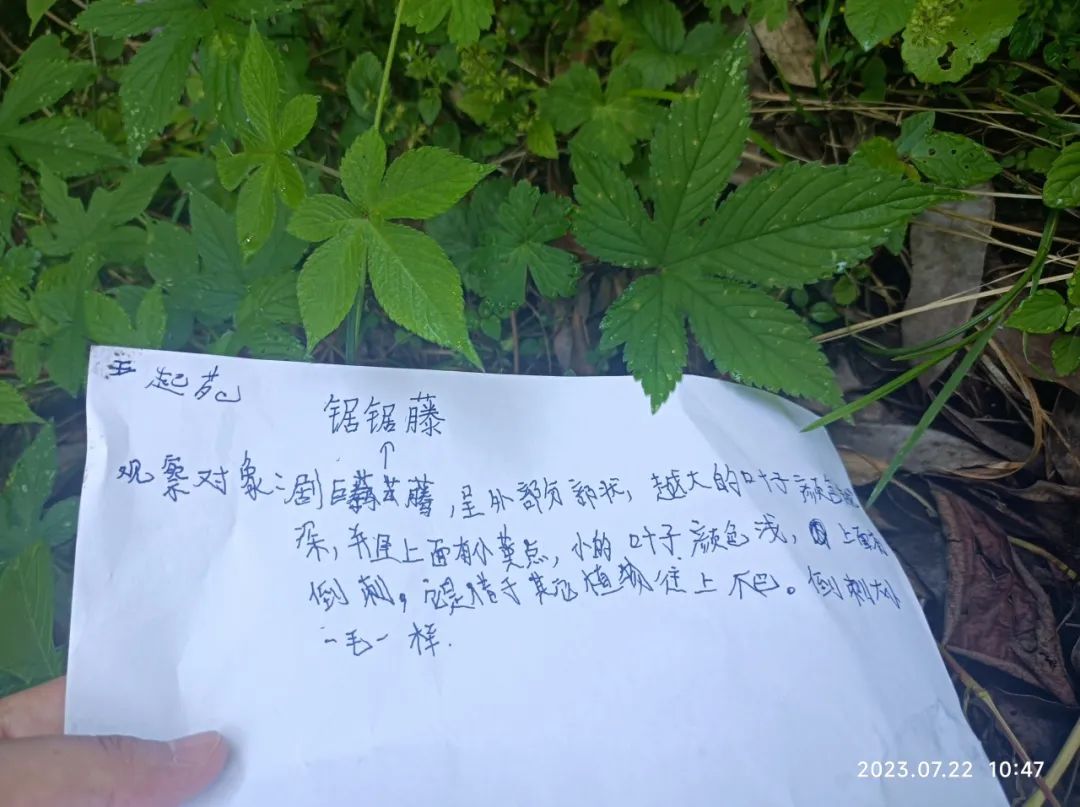 王起苑
锯锯藤
↑
观察对象:剧巨藤,呈外部分部状,越大的叶子颜色越
深,并且上面有小黄点,小的叶子颜色浅,上面有
倒刺,它是借于其他植物往上爬。倒刺大小
一毛一样.
2023.07.22 10:47